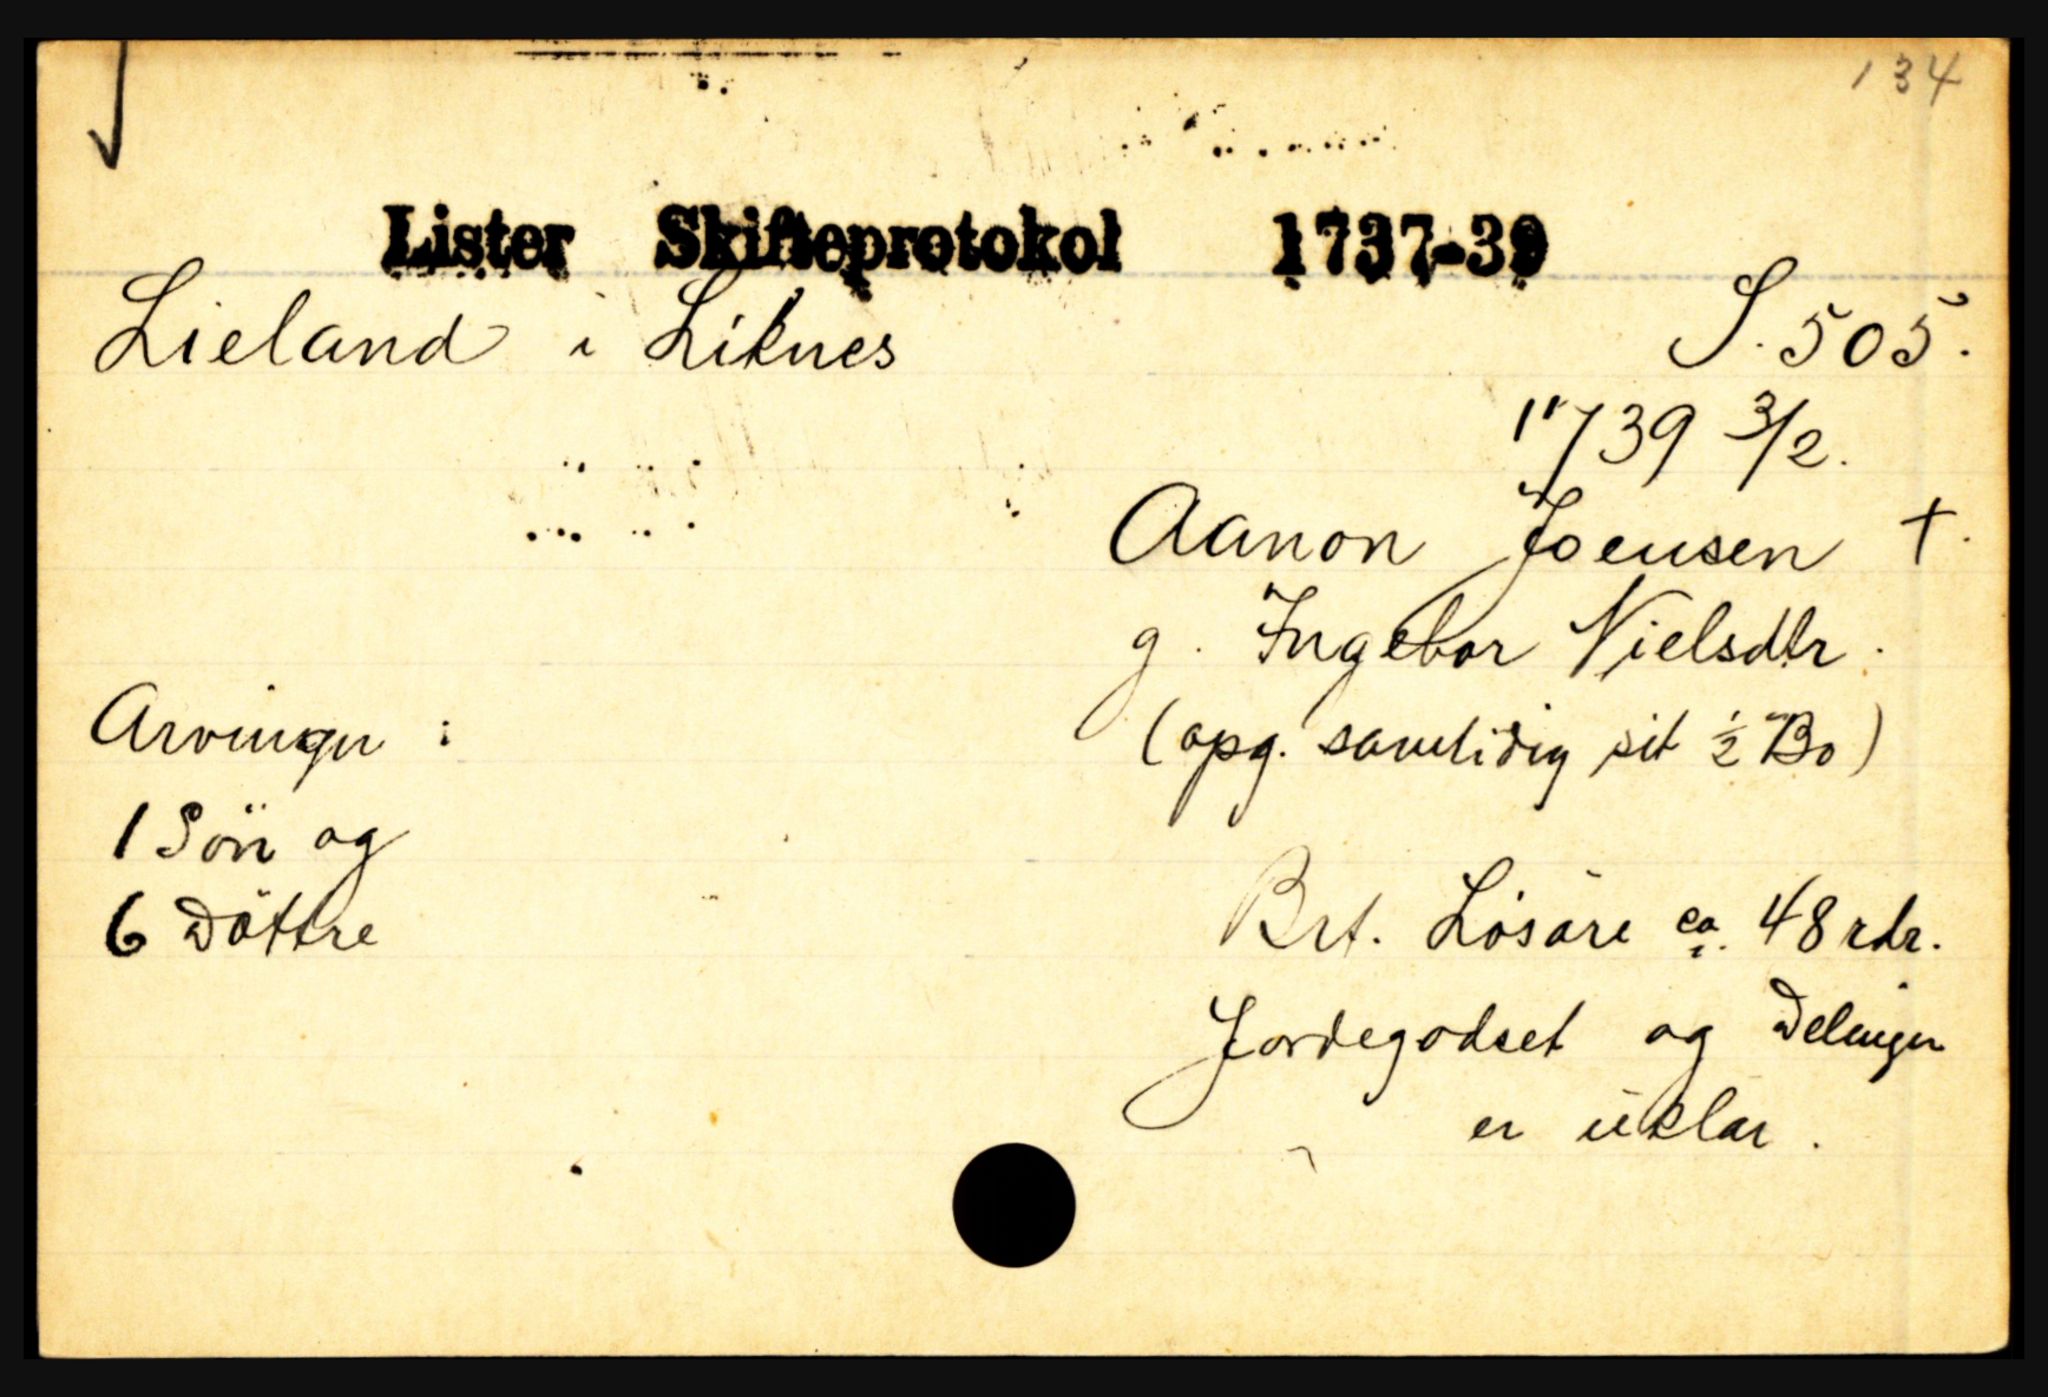 134
Lister Skifteprotokol 1737-39
Lieland i Liknes S. 505.
1739 3/2.
Aanon Joensen †.
g. Ingebor Nielsdtr.
(opg. samtidig sit ½ Bo)
Arvinger:
1 Sön og
6 Döttre
Brt. Lösöre ca. 48 rdr.
Jordegodset og Delingen
er uklar.